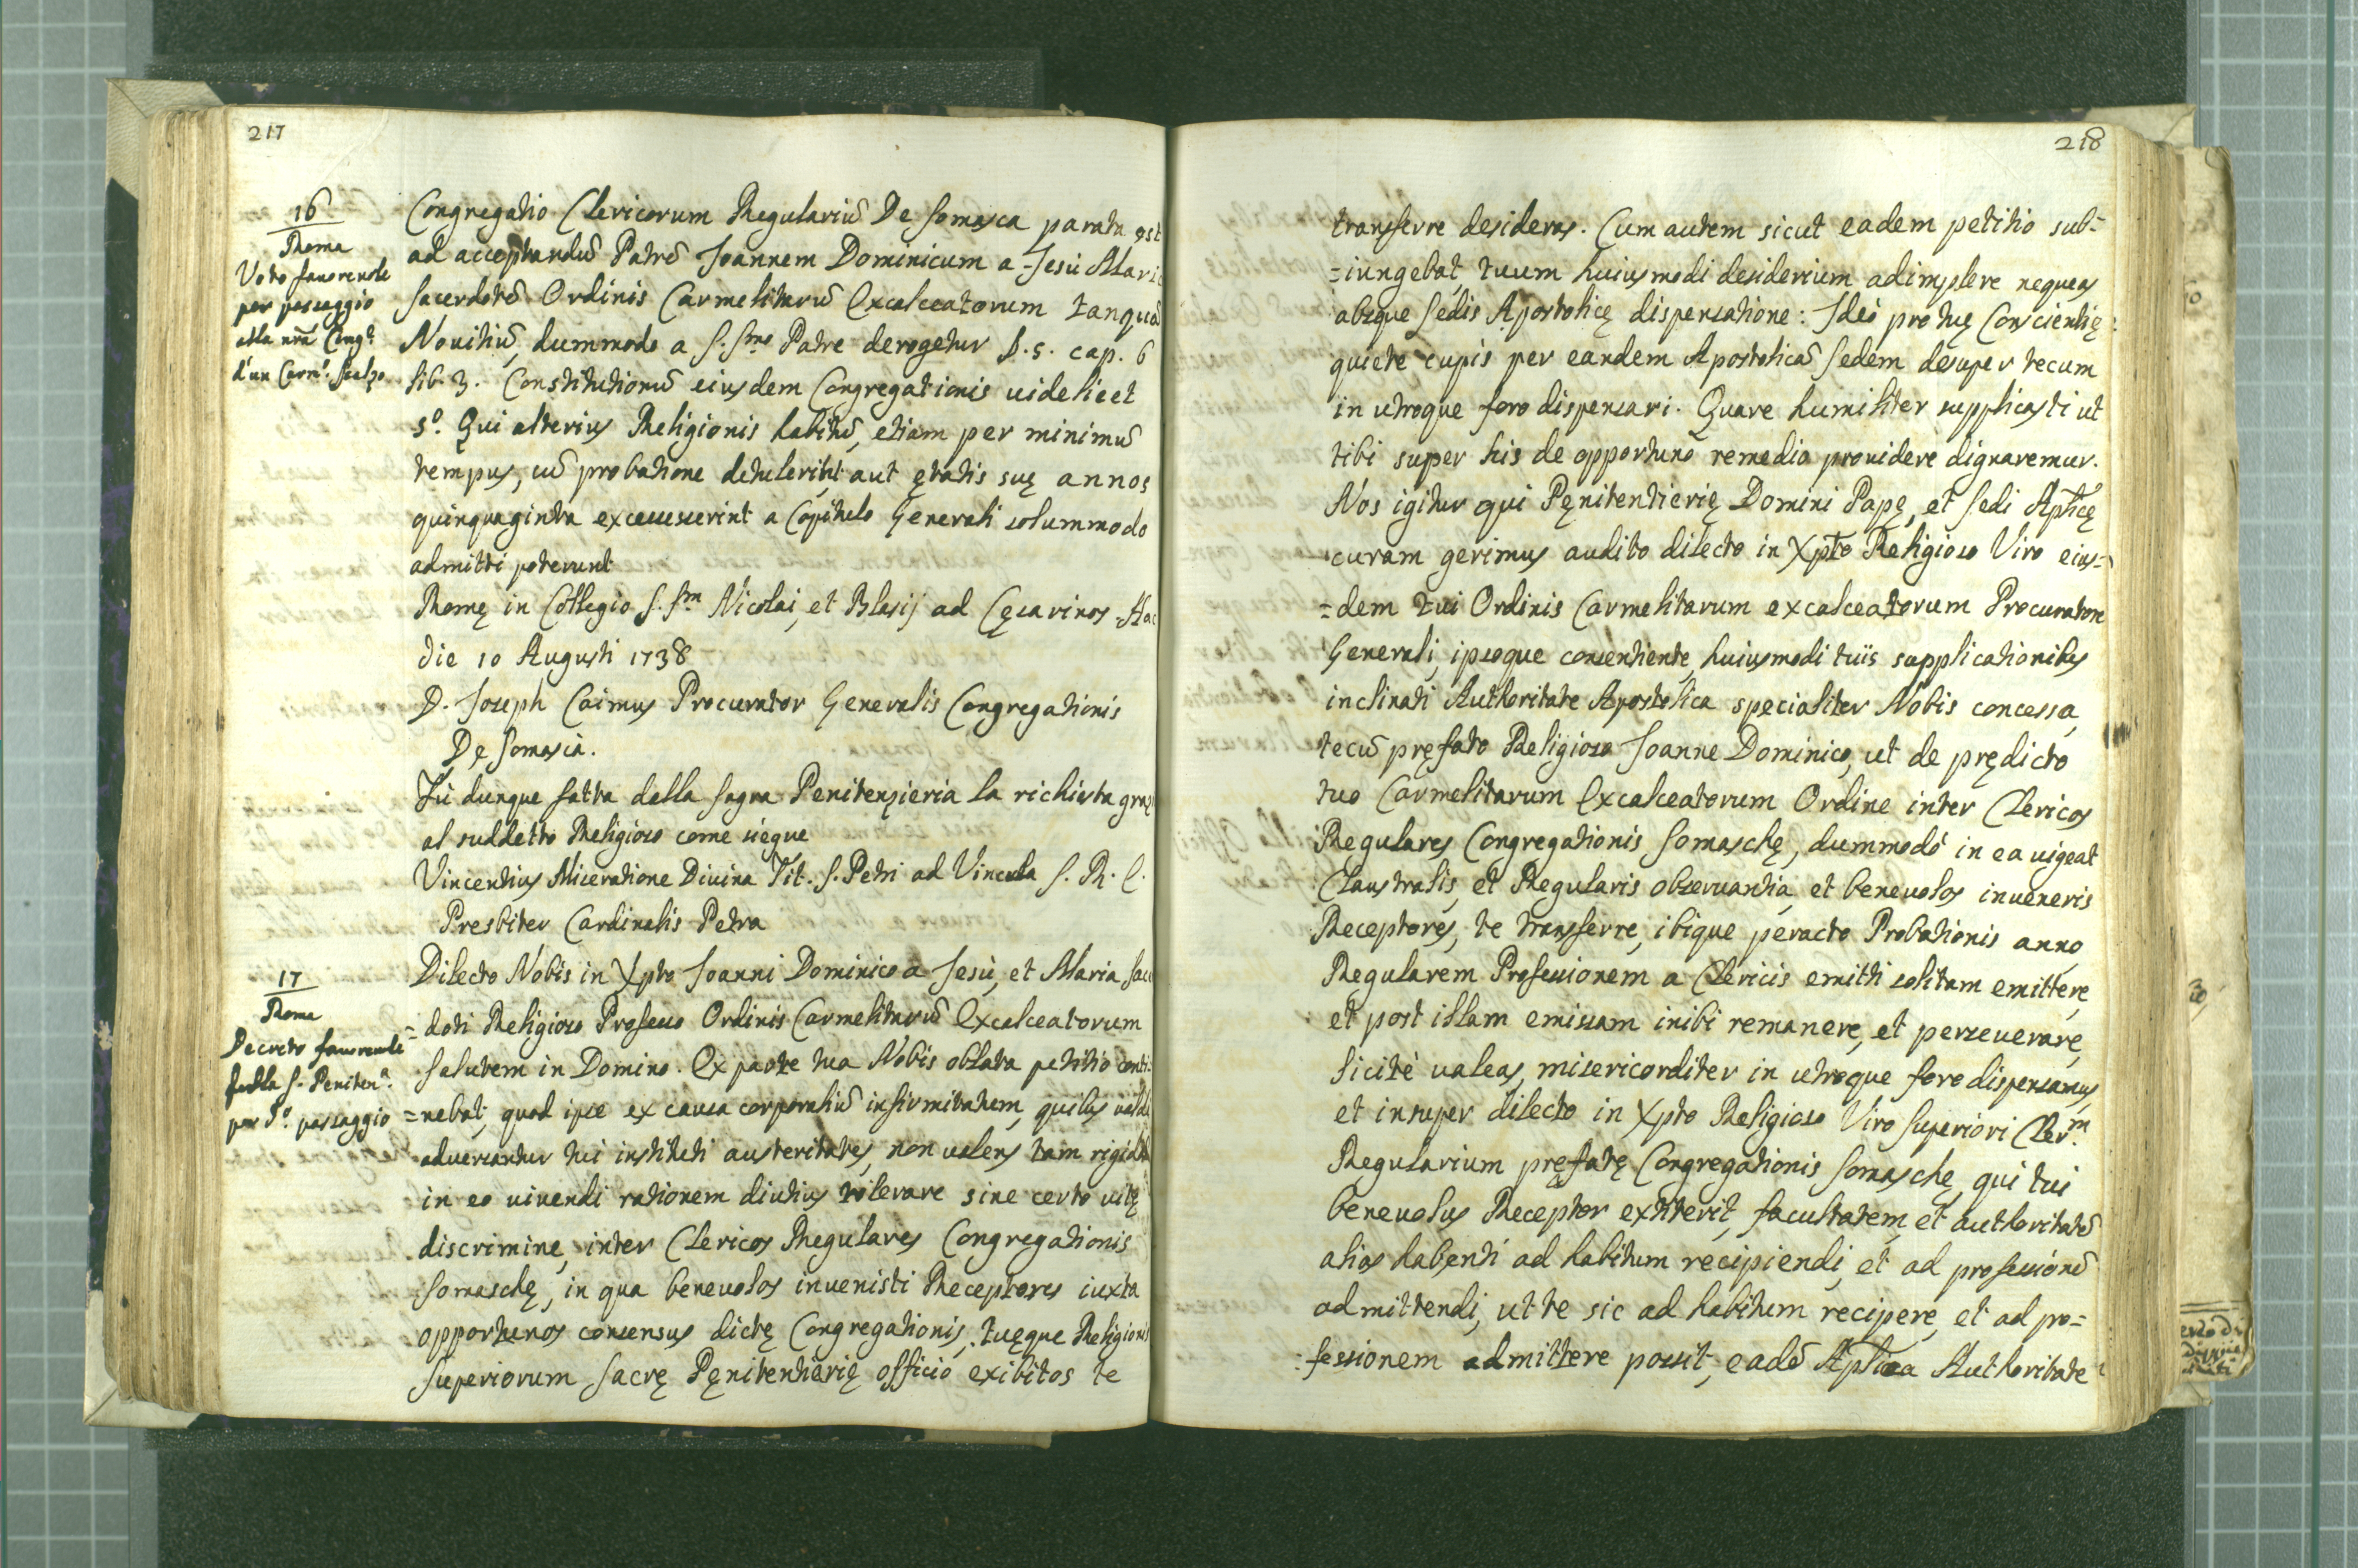 217
16
Roma
Voto fauoreuole
per passaggio
alla nrã Congꝰ
d'un Carmꝰ. Scalzo
Congregatio Clericorum Regulariũ De Somasca parata est
ad acceptandũ Patrẽ Joannem Dominicum a Jesù Mari
Sacerdotẽ Ordinis Carmelitarũ Excalceatorum tanquã
Nouitiũ, dummodo a S. Smo Patre derogetur §. 5. cap. 6
lib. 3. Constitutionũ eiusdem Congregationis uidelicet
5º. Qui alterius Religionis habitũ, etiam per minimũ
tempus, cũ probatione detulerint, aut ętatis suę annos
quinquaginta excesserint a Capitulo Generali solummodo
admitti poterunt
Romę in Collegio S. Sm Nicolai, et Blasij ad Cęsarinos Hac
die 10 Augusti 1738
D. Joseph Caimus Procurator Generalis Congregationis
De Somasca.
Fù dunque fatta dalla Sagra Penitenzieria la richiesta graz
al suddetto Religioso come siegue
Vincentius Miseratione Diuina Tit. S. Petri ad Vincula S. R. E.
Presbiter Cardinalis Petra
17
Roma
Decreto fauoreuole
della S. Penitenª.
per dº. passaggio
Dilecto Nobis in Xpto Joanni Dominico a Jesù, et Maria Sacer
=doti Religioso Professo Ordinis Carmelitarũ Excalceatorum
Salutem in Domino. Ex parte tua Nobis oblata petitio conti
=nebat, quod ipse ex causa corporaliũ infirmitatum, quibus ualde
aduersantur tui instituti austeritates, non ualens tam rigidã
in eo uiuendi rationem diutius tolerare sine certo uitę
discrimine, inter Clericos Regulares Congregationis
Somaschę, in qua beneuolos inuenisti Receptores iuxta
opportunos consensus dictę Congregationis, tuęque Religionis
Superiorum Sacrę Pęnitentierię officio exibitos te
218
transferre desideras. Cum autem sicut eadem petitio sub=
=iungebat, tuum huiusmodi desiderium adimplere nequeas
absque Sedis Apostolicę dispensatione: Ideò pro tuę Conscientię
quiete cupis per eandem Apostolicã Sedem desuper tecum
in utroque foro dispensari. Quare humiliter supplicasti ut
tibi super his de opportuno remedio prouidere dignaremur.
Nos igitur qui Pęnitentierię Domini Papę, et Sedi Aplicę
curam gerimus audito dilecto in Xpto Religioso Viro eius=
=dem tui Ordinis Carmelitarum excalceatorum Procuratore
Generali, ipsoque consentiente, huiusmodi tuis supplicationibus
inclinati Authoritate Apostolica specialiter Nobis concessa,
tecũ pręfato Religioso Joanne Dominico, ut de prędicto
tuo Carmelitarum Excalceatorum Ordine inter Clericos
Regulares Congregationis Somaschę, dummodò in ea uigeat
Claustralis, et Regularis obseruantia, et beneuolos inueneris
Receptores, te transferre, ibique peracto Probationis anno
Regularem Professionem a Clericis emitti solitam emittere,
et post illam emissam inibi remanere, et perseuerare,
licitè ualeas, misericorditer in utroque foro dispensamus,
et insuper dilecto in Xpto Religioso Viro Superiori Cler.m
Regularium pręfatę Congregationis Somaschę, qui tui
beneuolus Receptor extiterit, facultatem, et authoritatẽ
alias habenti ad habitum recipiendi, et ad professionẽ
admittendi, ut te sic ad habitum recipere, et ad pro=
fessionem admittere possit, eadẽ Aplica Authoritate